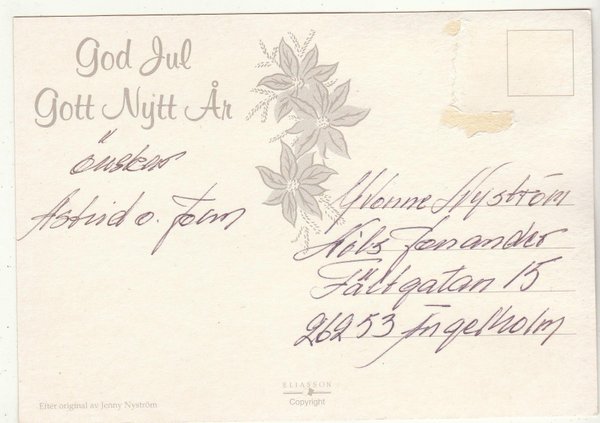 God Jul
Gott Nytt År
önskar
Astrid o.
Yvonne Nyström
Nils
Fältgatan 15
26253 Ängelholm
ELIASSON
Copyright
Efter original av Jenny Nyström